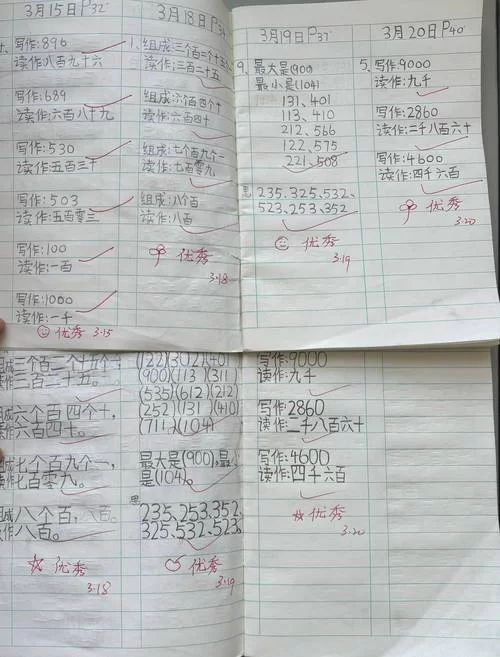 3月15日P32
写作:896
读作:八百九十六
写作:689
读作:六百八十九
写作:530
读作:五百三十
写作:503
读作:五百零三
写作:100
读作:一百
写作:1000
读作:一千
优秀 3·15
3月18日P34
1、组成:三个百二个十五个
读作:三百二十五
组成:六个百四个十
读作:六百四十
组成:七个百九个一
读作:七百零九
组成:八个百
读作:八百
优秀
3·18
3月19日P37
9、最大是(900)
最小是(104)
131、401
113、410
212、566
122、575
221、508
思 235、325、532、
523、253、352
优秀
3·19
3月20日P40
5、写作:9000
读作:九千
写作:2860
读作:二千八百六十
写作:4600
读作:四千六百
优秀
3·20
组成三个百二个十五个一,
读作三百二十五。
组成六个百四个十,
读作六百四十。
组成七个百九个一,
读作七百零九。
组成八个百,八百。
读作八百。
优秀
3·18
(122)(302)(401)
(900)(113)(311)
(535)(612)(212)
(252)(131)(410)
(711)(104)
最大是(900),最
是(104)。
思
235、253、352、
325、532、523。
优秀
3·19
写作:9000
读作:九千
写作:2860
读作:二千八百六十
写作:4600
读作:四千六百
优秀
3·20